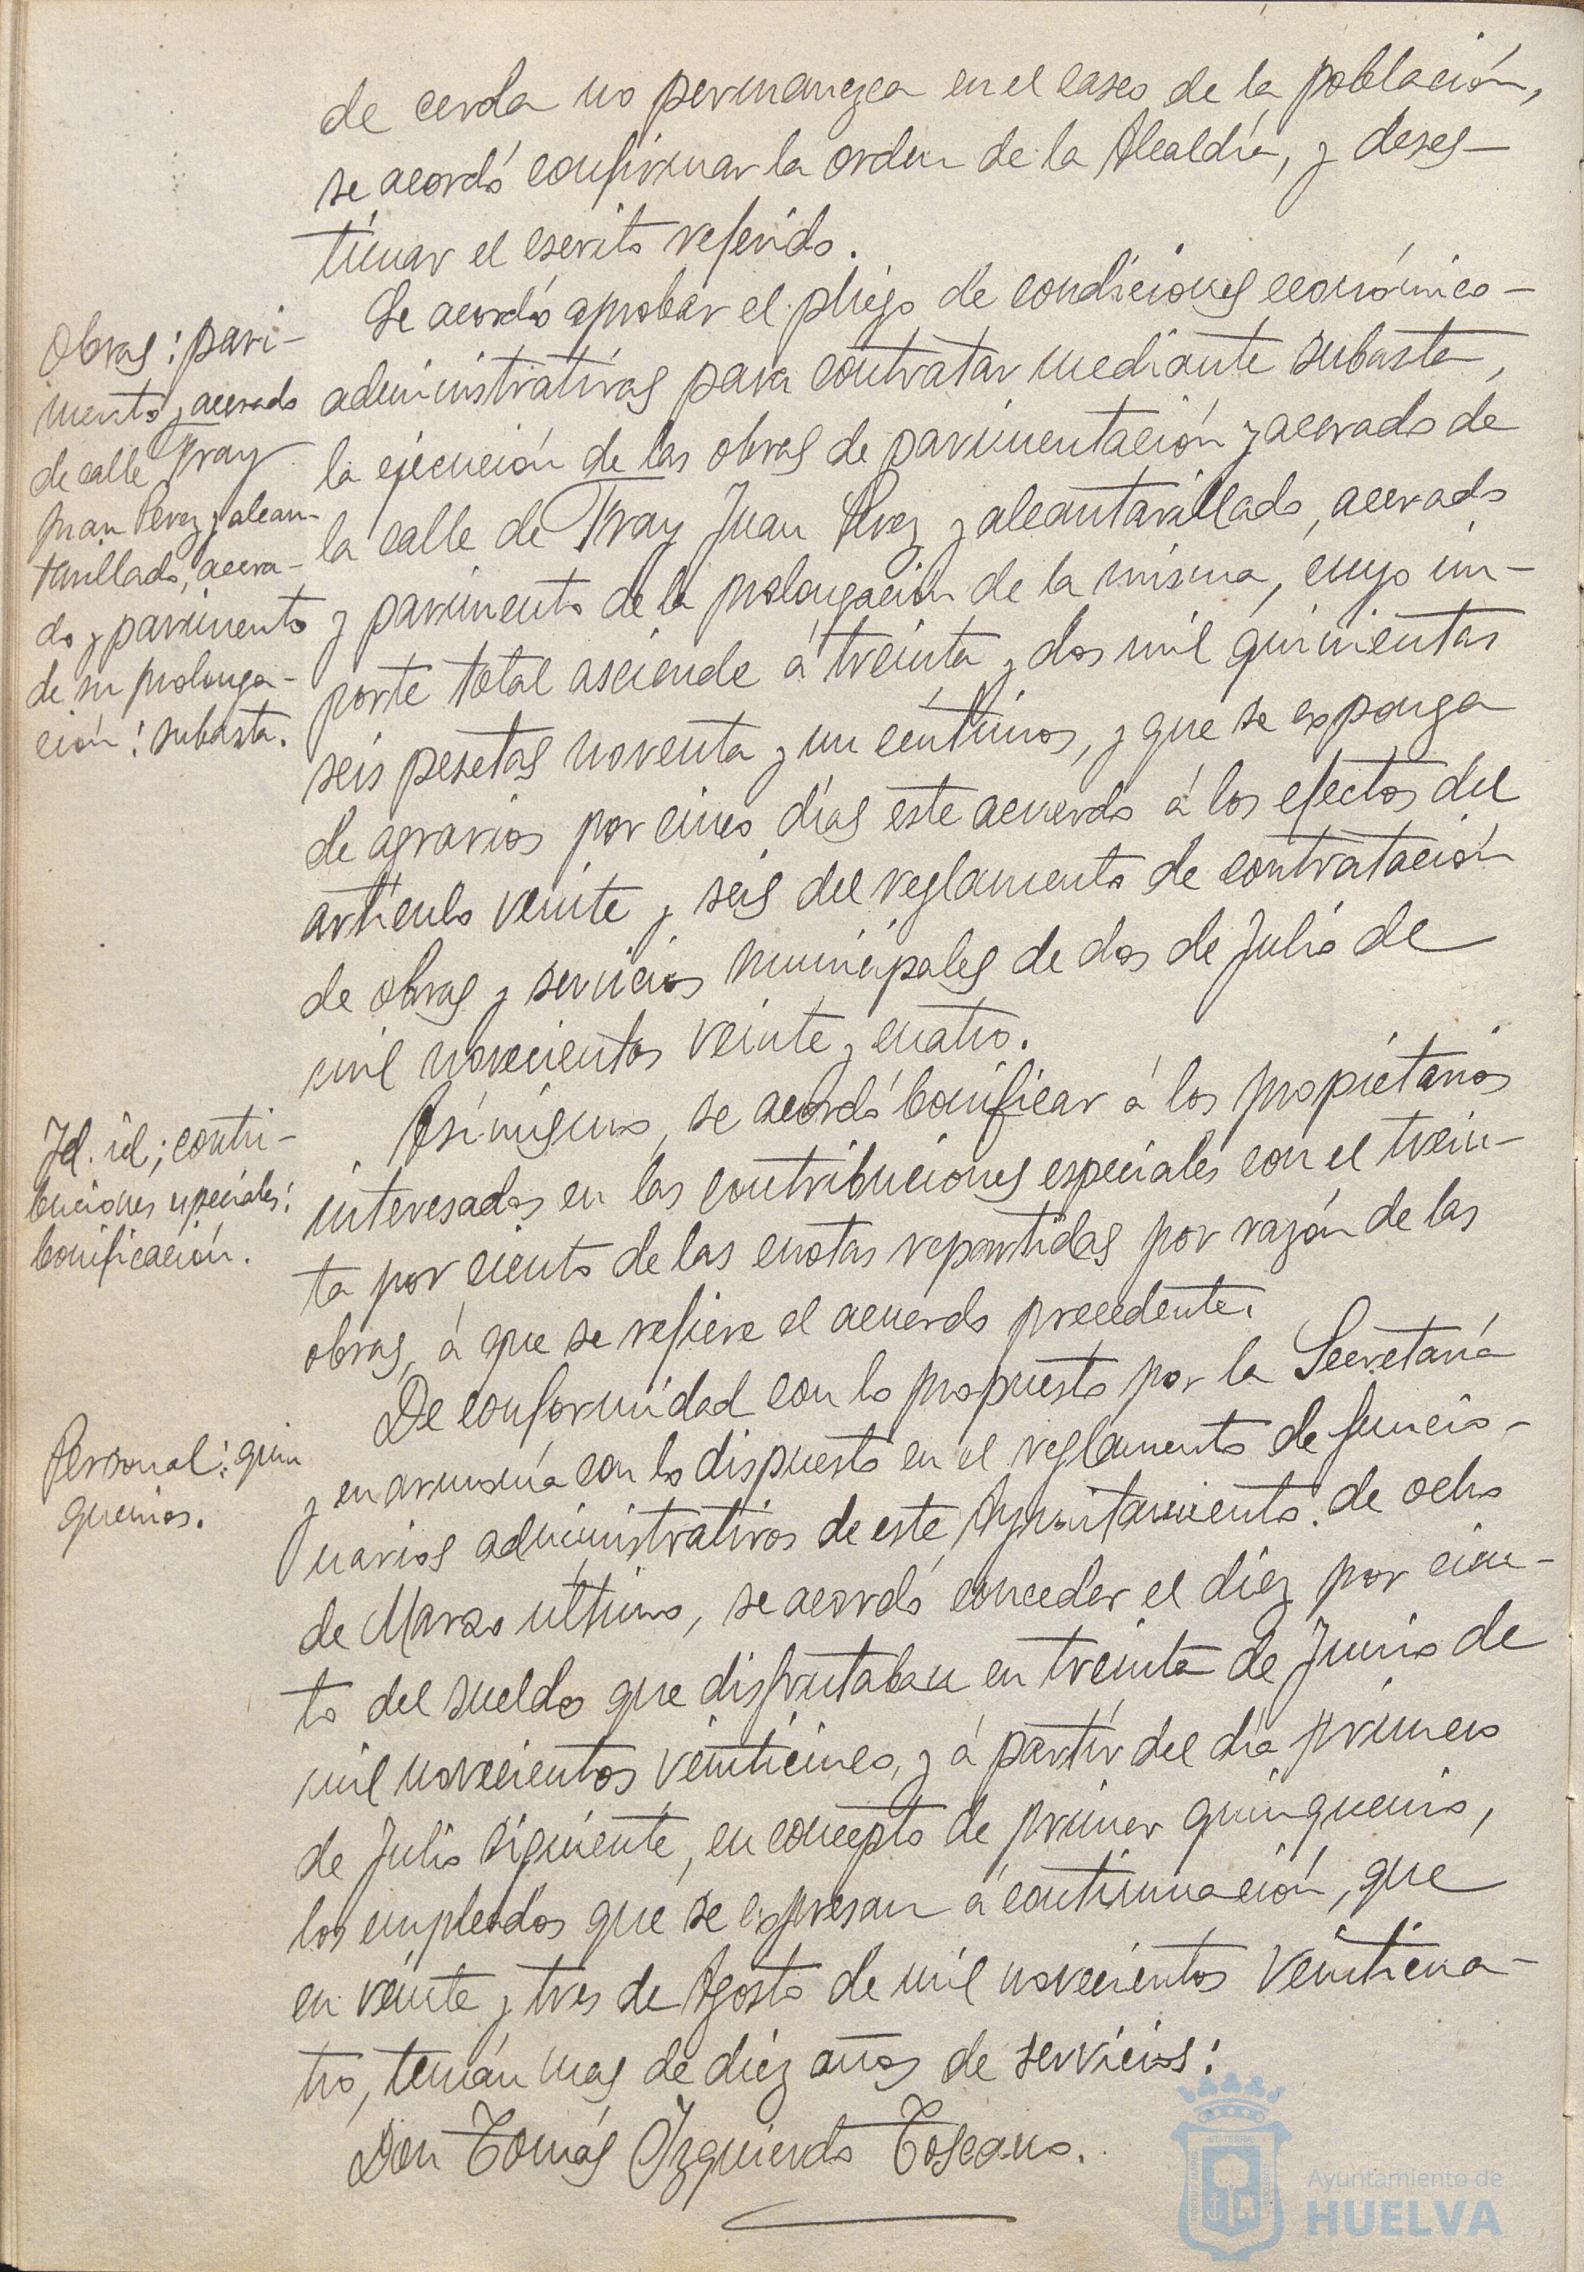 de cerda no permanezca en el casco de la población,
se acordó confirmar la orden de la Alcaldía, y deses-
timar el escrito referido.
Obras: pavi-
mento y acerado
de calle Fray
Juan Perez y alcan-
tarillado, acera-
do y pavimento
de su prolonga-
ción: subasta.
Se acordó aprobar el pliego de condiciones económico-
administrativas para contratar mediante subasta,
la ejecución de las obras de pavimentación y acerado de
la calle de Fray Juan Perez y alcantarillado, acerado
y pavimento de la prolongación de la misma, cuyo im-
porte total asciende á treinta y dos mil quinientas
seis pesetas noventa y un céntimos, y que se exponga
de agravios por cinco días este acuerdo á los efectos del
artículo veinte y seis del reglamento de contratación
de obras y servicios municipales de dos de Julio de
mil novecientos veinte y cuatro.
Id. id; contri-
buciones especiales:
bonificación.
Asímismo, se acordó bonificar á los propietarios
interesados en las contribuciones especiales con el trein-
ta por ciento de las cuotas repartidas por razón de las
obras, á que se refiere el acuerdo precedente.
Personal: quin
quenios.
De conformidad con lo propuesto por la Secretaría
y en armonía con lo dispuesto en el reglamento de funcio-
narios administrativos de este Ayuntamiento de ocho
de Marzo último, se acordó conceder el diez por cien-
to del sueldo que disfrutaban en treinta de Junio de
mil novecientos veinticinco, y á partir del día primero
de Julio siguiente, en concepto de primer quinquenio,
los empleados que se expresan á continuación, que
en veinte y tres de Agosto de mil novecientos veinticua-
tro, tenían mas de diez años de servicios:
Don Tomás Izquierdo Toscano.
Ayuntamiento de
HUELVA